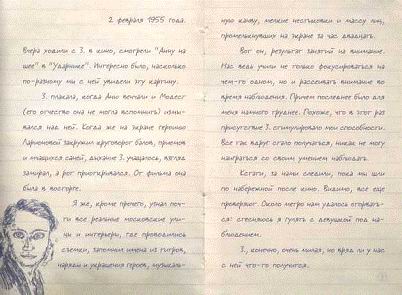 2 февраля 1955 года.
Вчера ходили с З. в кино, смотрели "Анну на
шее" в "Ударнике". Интересно было, насколько
по-разному мы с ней увидели эту картину.
З. плакала, когда Аню венчали и Модест
(его отчество она не могла вспомнить) измы-
вался над ней. Когда же на экране героиню
Ларионовой закружил круговорот балов, приемов
и мчащихся саней, дыхание З. учащалось, взгляд
замирал, а рот приоткрывался. От фильма она
была в восторге.
Я же, кроме прочего, узнал поч-
ти все реальные московские ули-
цы и интерьеры, где проводились
съемки, запомнил имена из титров,
наряды и украшения героев, музыкаль-
ную канву, мелкие нестыковки и массу лиц,
промелькнувших на экране за час двадцать.
Вот он, результат занятий на внимание.
Нас ведь учили не только фокусироваться на
чем-то одном, но и рассеивать внимание во
время наблюдения. Причем последнее было для
меня намного труднее. Похоже, что в этот раз
присутствие З. стимулировало мои способности.
Все так вдруг стало получаться, никак не могу
наиграться со своим умением наблюдать.
Кстати, за нами следили, пока мы шли
по набережной после кино. Видимо, все еще
проверяют. Около метро нам удалось оторвать-
ся: стесняюсь я гулять с девушкой под на-
блюдением.
З., конечно, очень милая, но вряд ли у нас
с ней что-то получится.